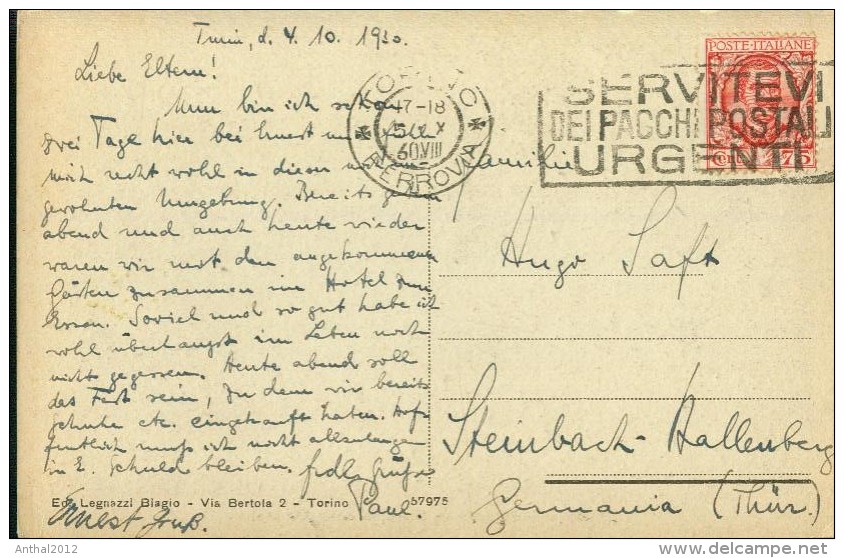 Turin, d. 4. 10. 1930.
Liebe Eltern!
Nun bin ich schon
drei Tage hier bei Ernest und fühle
mich recht wohl in dieser
gewohnten Umgebung. Bereits gestern
abend und auch heute wieder
waren wir mit den angekommenen
Gästen zusammen im Hotel zum
Essen. Soviel und so gut habe ich
wohl überhaupt im Leben noch
nicht gegessen. Heute abend soll
das Fest sein, zu dem wir bereits
Schuhe etc. eingekauft haben. Hof-
fentlich muß ich nicht allzulange
in E. Schuld bleiben. Grüße
Paul.
Ernest Gruß.
Ed. Legnazzi Biagio - Via Bertola 2 - Torino
57975
TORINO
17-18
FERROVIA
POSTE·ITALIANE
Cent. 75
SERVITEVI
DEI PACCHI POSTALI
URGENTI
Familie
Hugo Saft
Steinbach-Hallenberg
Germania (Thür.)
Anthal2012
http://www.delcampe.net